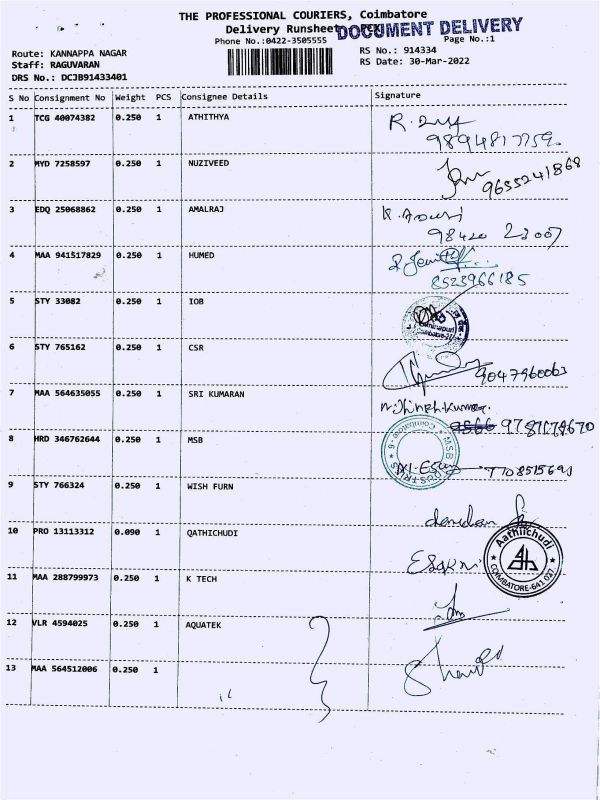 THE PROFESSIONAL COURIERS, Coimbatore
Delivery Runsheet
DOCUMENT DELIVERY
Phone No.:0422-3505555
Page No.:1
Route: KANNAPPA NAGAR
RS No.: 914334
Staff: RAGUVARAN
RS Date: 30-Mar-2022
DRS No.: DCJB91433401
S No Consignment No Weight PCS Consignee Details Signature
1 TCG 40074382 0.250 1 ATHITHYA
2 MYD 7258597 0.250 1 NUZIVEED
9655241868
3 EDQ 25068862 0.250 1 AMALRAJ
98420 23007
4 MAA 941517829 0.250 1 HUMED
8523966185
5 STY 33082 0.250 1 IOB
6 STY 765162 0.250 1 CSR
9047960063
7 MAA 564635055 0.250 1 SRI KUMARAN
8 HRD 346762644 0.250 1 MSB
MSB
9 STY 766324 0.250 1 WISH FURN
10 PRO 13113312 0.090 1 QATHICHUDI
Aathiichudi
COIMBATORE-641 027
11 MAA 288799973 0.250 1 K TECH
12 VLR 4594025 0.250 1 AQUATEK
13 MAA 564512006 0.250 1